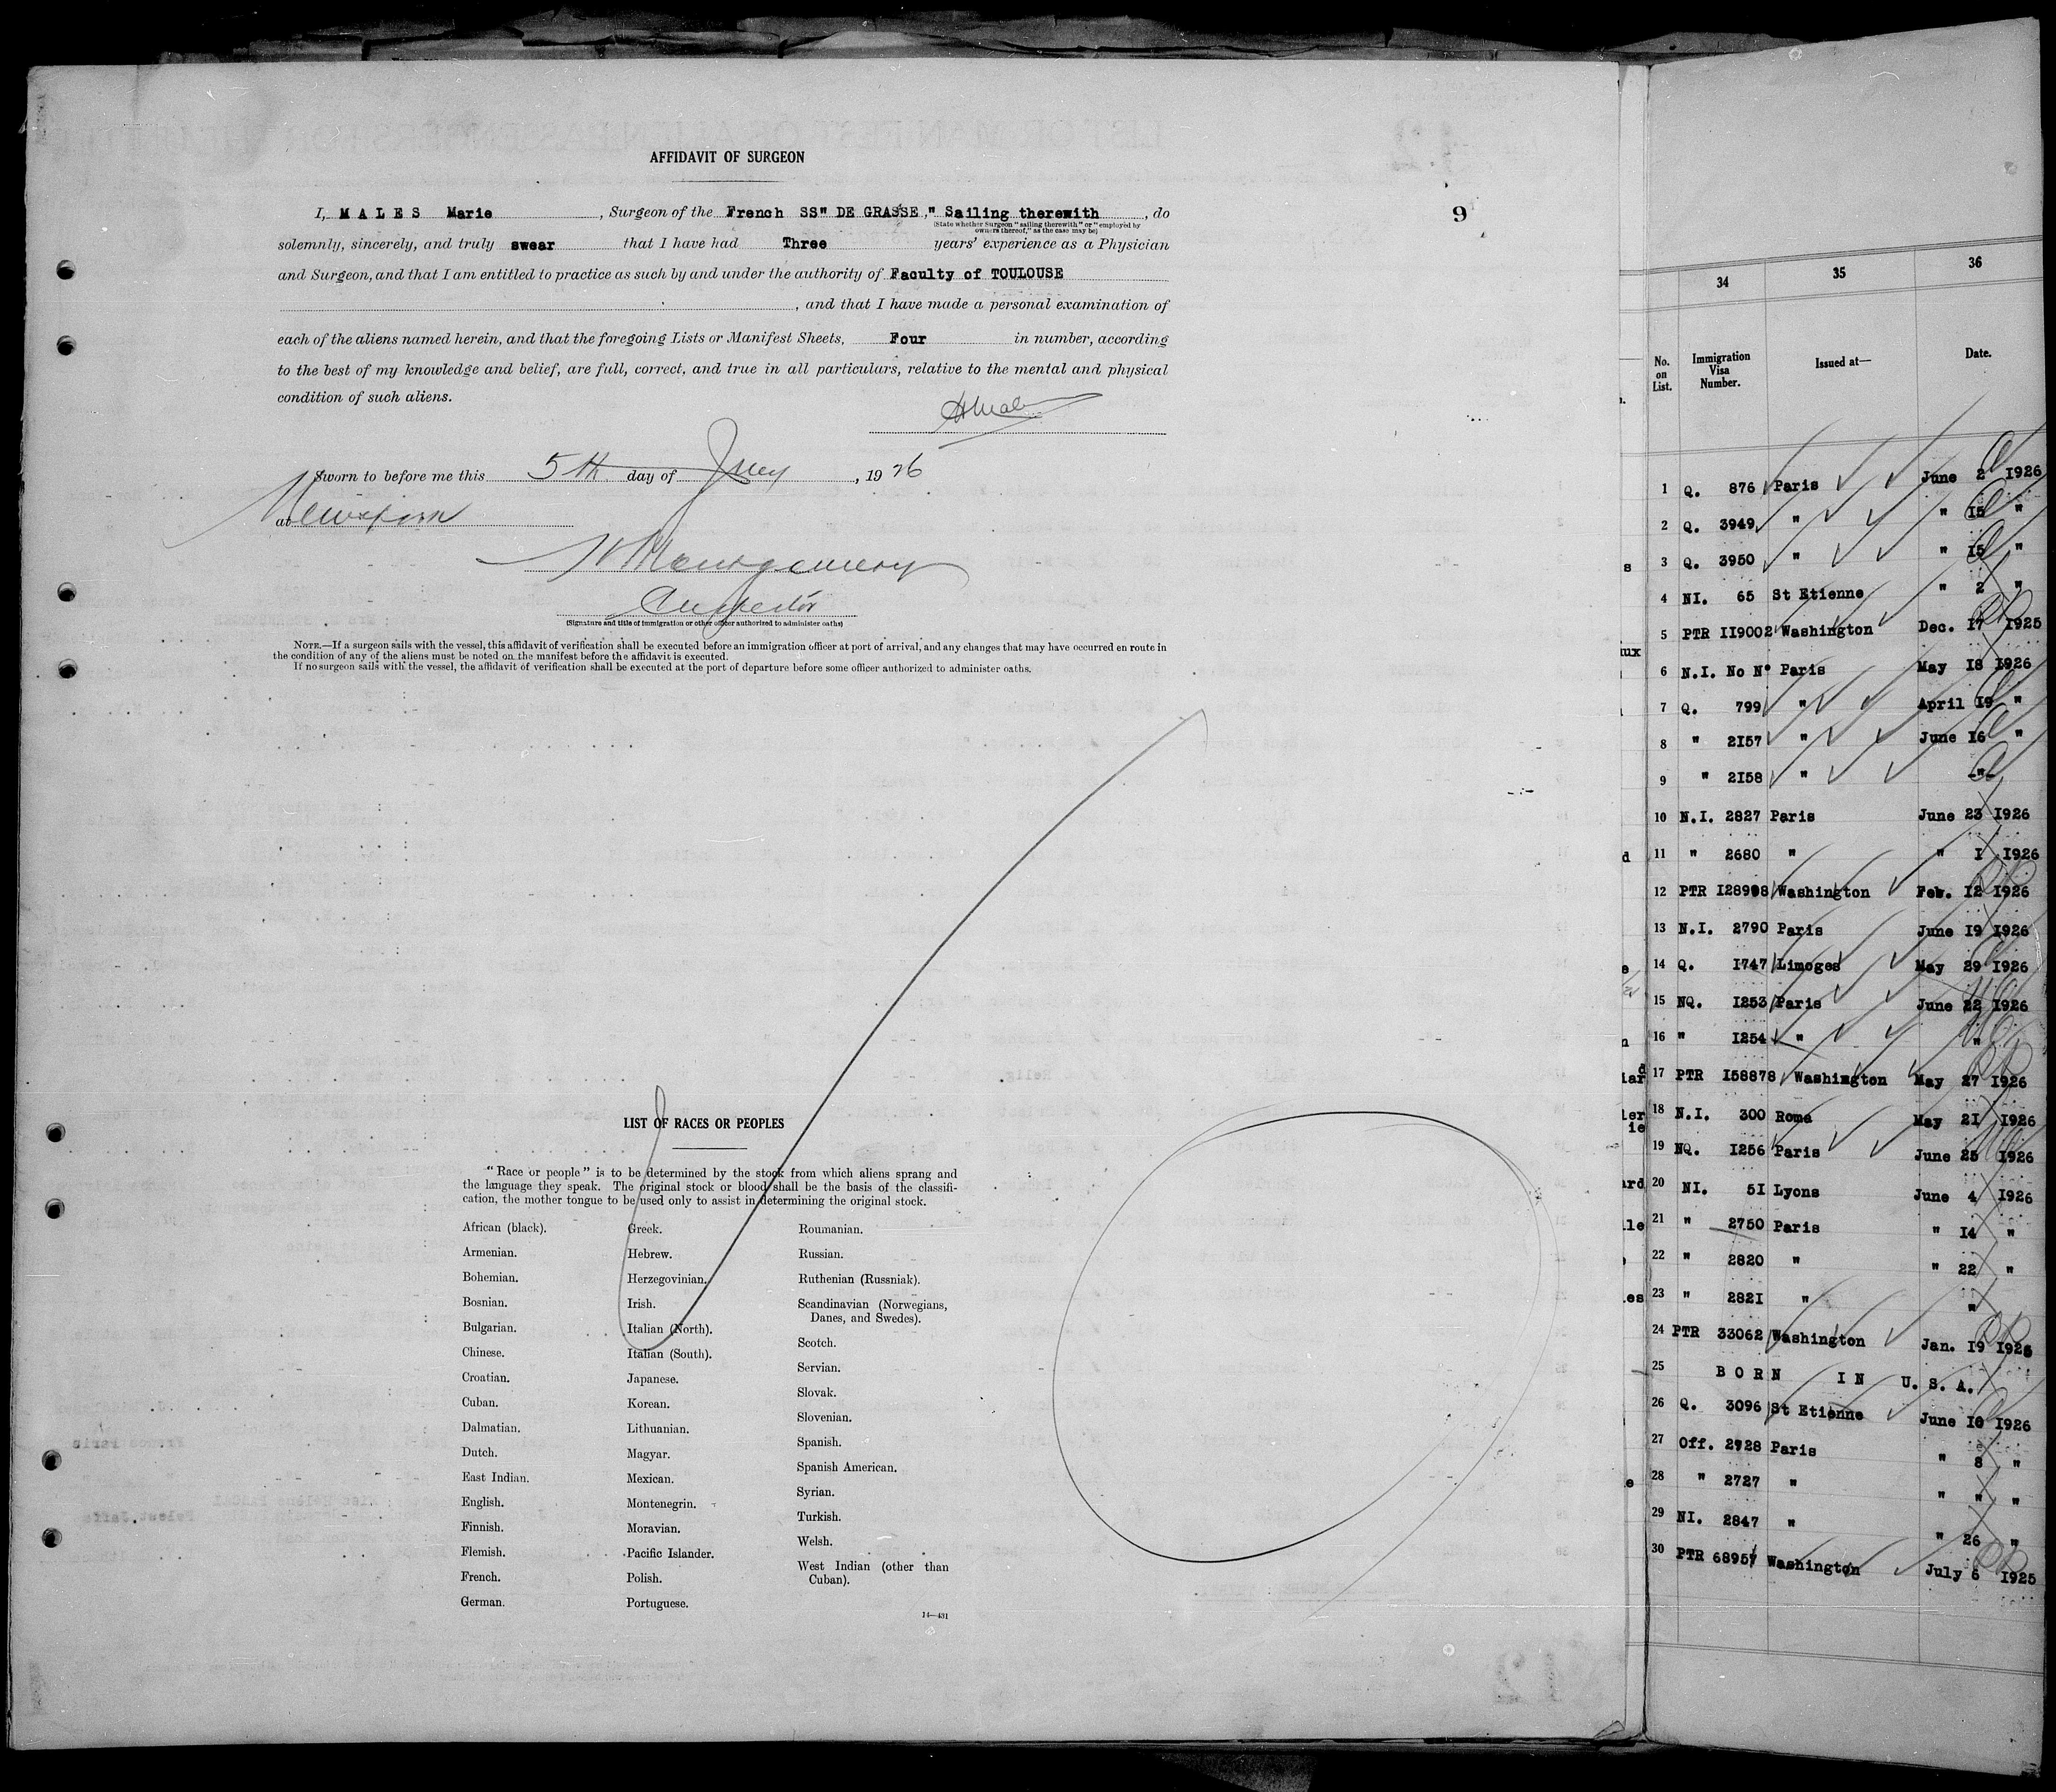 AFFIDAVIT OF SURGEON
9
I, MALES Marie, Surgeon of the French SS" DE GRASSE," Sailing therewith, do
(State whether Surgeon "sailing therewith" or "employed by
owners thereof," as the case may be)
solemnly, sincerely, and truly swear that I have had Three years' experience as a Physician
and Surgeon, and that I am entitled to practice as such by and under the authority of Faculty of TOULOUSE
, and that I have made a personal examination of
each of the aliens named herein, and that the foregoing Lists or Manifest Sheets, Four in number, according
to the best of my knowledge and belief, are full, correct, and true in all particulars, relative to the mental and physical
condition of such aliens.
Sworn to before me this 5th day of July, 1926
at New York
Montgomery
Inspector
(Signature and title of immigration or other officer authorized to administer oaths)
NOTE.—If a surgeon sails with the vessel, this affidavit of verification shall be executed before an immigration officer at port of arrival, and any changes that may have occurred en route in
the condition of any of the aliens must be noted on the manifest before the affidavit is executed.
If no surgeon sails with the vessel, the affidavit of verification shall be executed at the port of departure before some officer authorized to administer oaths.
LIST OF RACES OR PEOPLES
"Race or people" is to be determined by the stock from which aliens sprang and
the language they speak. The original stock or blood shall be the basis of the classifi-
cation, the mother tongue to be used only to assist in determining the original stock.
African (black).
Armenian.
Bohemian.
Bosnian.
Bulgarian.
Chinese.
Croatian.
Cuban.
Dalmatian.
Dutch.
East Indian.
English.
Finnish.
Flemish.
French.
German.
Greek.
Hebrew.
Herzegovinian.
Irish.
Italian (North).
Italian (South).
Japanese.
Korean.
Lithuanian.
Magyar.
Mexican.
Montenegrin.
Moravian.
Pacific Islander.
Polish.
Portuguese.
Roumanian.
Russian.
Ruthenian (Russniak).
Scandinavian (Norwegians,
Danes, and Swedes).
Scotch.
Servian.
Slovak.
Slovenian.
Spanish.
Spanish American.
Syrian.
Turkish.
Welsh.
West Indian (other than
Cuban).
14—431
34 35 36
No. on List. Immigration Visa Number. Issued at— Date.
1 Q. 876 Paris June 2 1926
2 Q. 3949 " " 15 "
3 Q. 3950 " " 15 "
4 NI. 65 St Etienne " 2 "
5 PTR 119002 Washington Dec. 17 1925
6 N.I. No N° Paris May 18 1926
7 Q. 799 " April 19 "
8 " 2157 " June 16 "
9 " 2158 " -"-
10 N.I. 2827 Paris June 23 1926
11 " 2680 " " 1 1926
12 PTR 128998 Washington Feb. 12 1926
13 N.I. 2790 Paris June 19 1926
14 Q. 1747 Limoges May 29 1926
15 NQ. 1253 Paris June 22 1926
16 " 1254 " "
17 PTR 158878 Washington May 27 1926
18 N.I. 300 Roma May 21 1926
19 NQ. 1256 Paris June 25 1926
20 NI. 51 Lyons June 4 1926
21 " 2750 Paris " 14 "
22 " 2820 " " 22 "
23 " 2821 " "
24 PTR 33062 Washington Jan. 19 1926
25 BORN IN U.S.A.
26 Q. 3096 St Etienne June 10 1926
27 Off. 2728 Paris " 8 "
28 " 2727 " " " "
29 NI. 2847 " " 26 "
30 PTR 68957 Washington July 6 1925